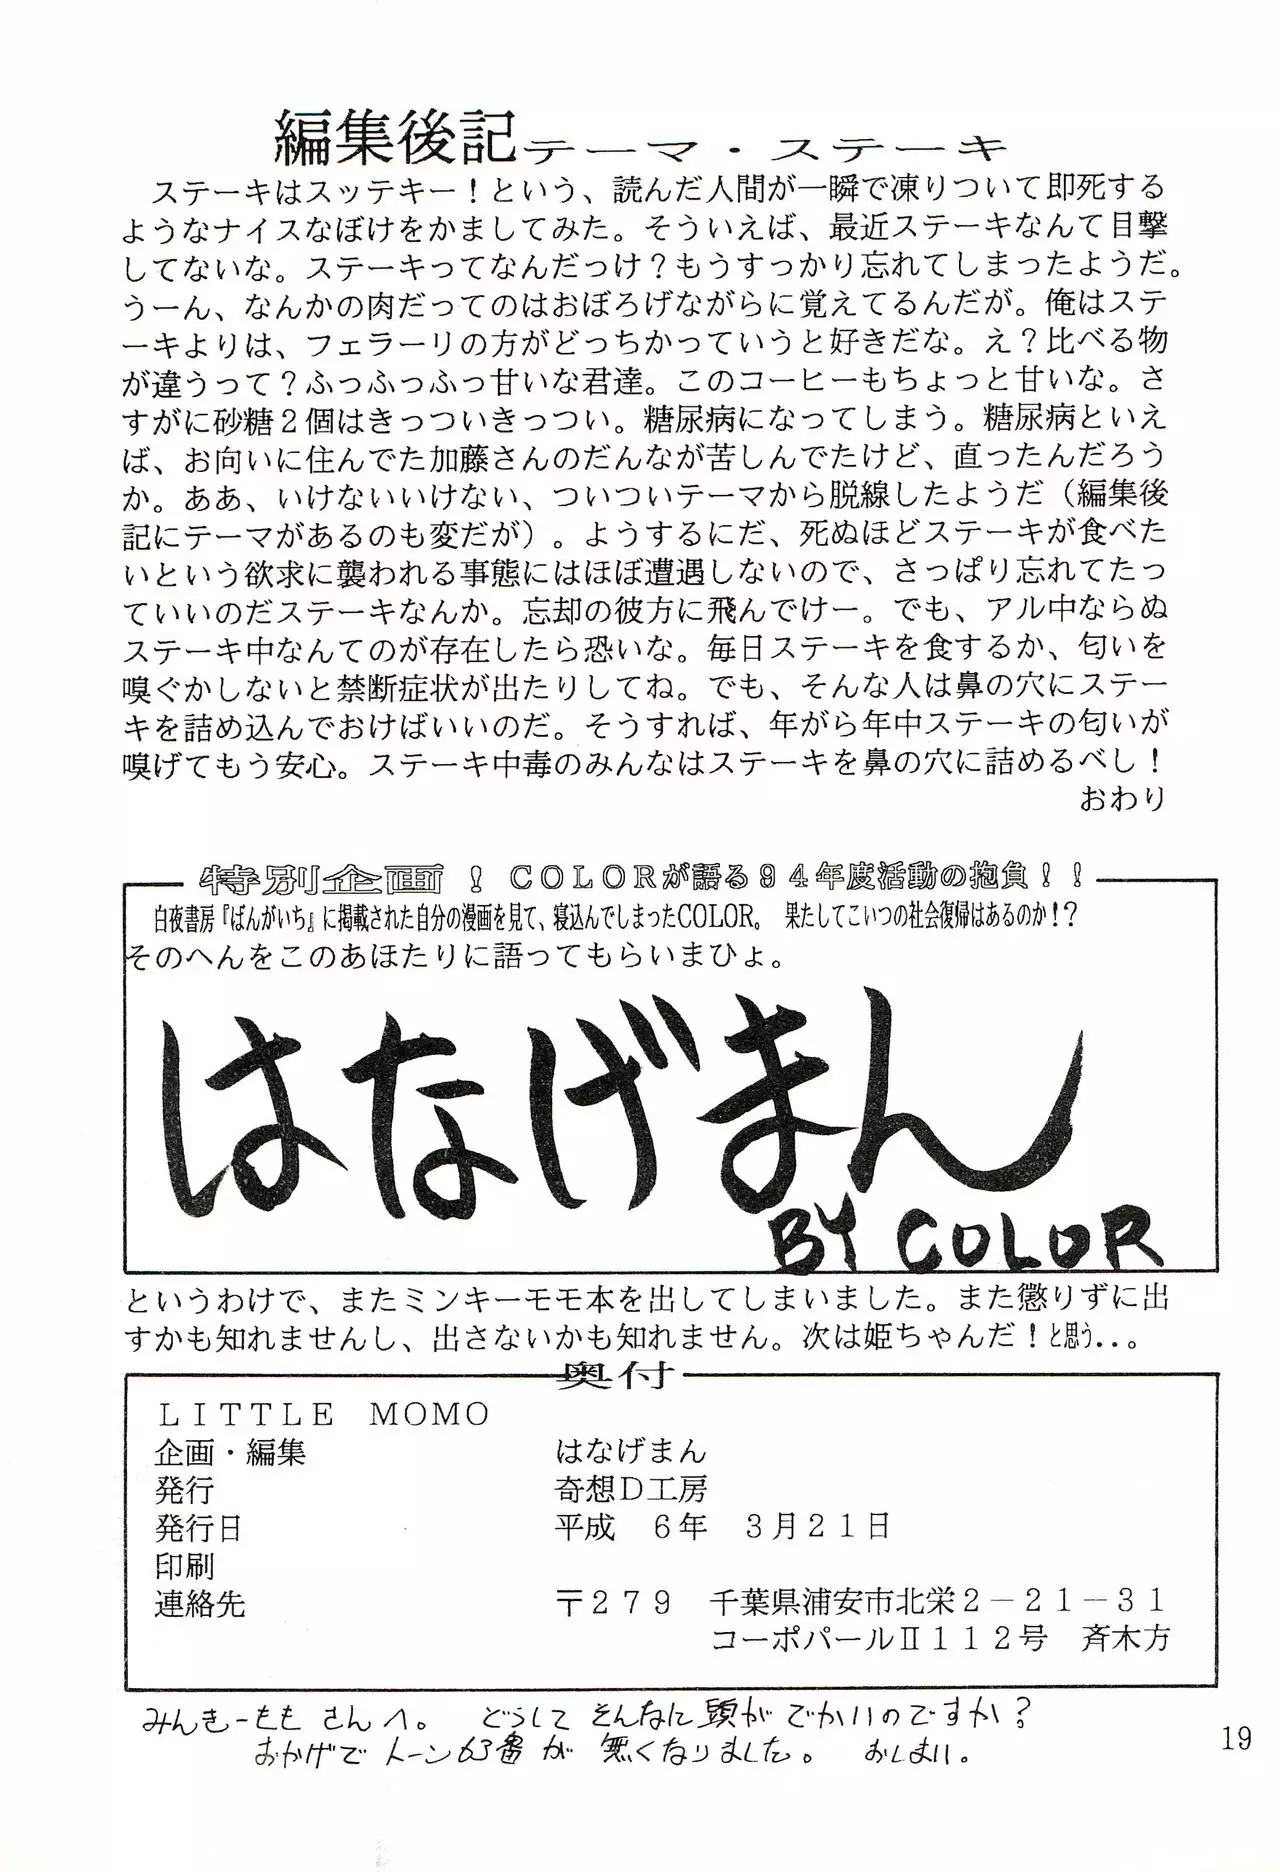 編集後記テーマ・ステーキ
ステーキはスッテキー！という、読んだ人間が一瞬で凍りついて即死する
ようなナイスなぼけをかましてみた。そういえば、最近ステーキなんて目撃
してないな。ステーキってなんだっけ？もうすっかり忘れてしまったようだ。
うーん、なんかの肉だってのはおぼろげながらに覚えてるんだが。俺はステ
ーキよりは、フェラーリの方がどっちかっていうと好きだな。え？比べる物
が違うって？ふっふっふっ甘いな君達。このコーヒーもちょっと甘いな。さ
すがに砂糖２個はきっついきっつい。糖尿病になってしまう。糖尿病といえ
ば、お向いに住んでた加藤さんのだんなが苦しんでたけど、直ったんだろう
か。ああ、いけないいけない、ついついテーマから脱線したようだ（編集後
記にテーマがあるのも変だが）。ようするにだ、死ぬほどステーキが食べた
いという欲求に襲われる事態にはほぼ遭遇しないので、さっぱり忘れてたっ
ていいのだステーキなんか。忘却の彼方に飛んでけー。でも、アル中ならぬ
ステーキ中なんてのが存在したら恐いな。毎日ステーキを食するか、匂いを
嗅ぐかしないと禁断症状が出たりしてね。でも、そんな人は鼻の穴にステー
キを詰め込んでおけばいいのだ。そうすれば、年がら年中ステーキの匂いが
嗅げてもう安心。ステーキ中毒のみんなはステーキを鼻の穴に詰めるべし！
おわり
特別企画！ＣＯＬＯＲが語る９４年度活動の抱負！！
白夜書房『ばんがいち』に掲載された自分の漫画を見て、寝込んでしまったCOLOR。 果たしてこいつの社会復帰はあるのか！？
そのへんをこのあほたりに語ってもらいまひょ。
はなげまん
BY COLOR
というわけで、またミンキーモモ本を出してしまいました。また懲りずに出
すかも知れませんし、出さないかも知れません。次は姫ちゃんだ！と思う．．。
奥付
ＬＩＴＴＬＥ ＭＯＭＯ
企画・編集 はなげまん
発行 奇想Ｄ工房
発行日 平成 ６年 ３月２１日
印刷
連絡先 〒２７９ 千葉県浦安市北栄２－２１－３１
コーポパールⅡ１１２号 斉木方
みんきーももさんへ。 どうしてそんなに頭がでかいのですか？
おかげでトーン63番が無くなりました。 おしまい。
19